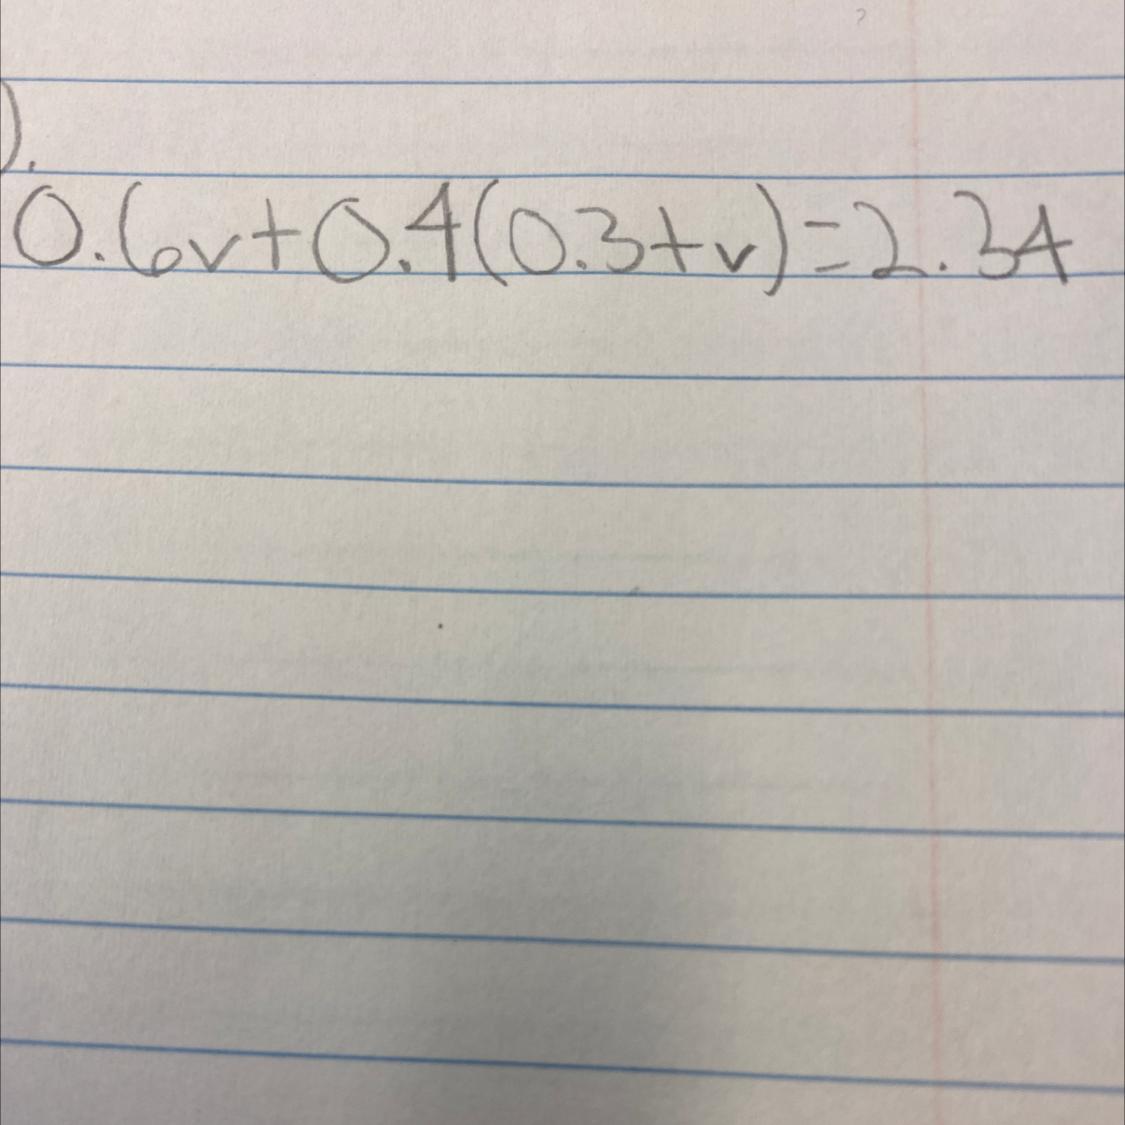 ).
0.6v+0.4(0.3+v)=2.34